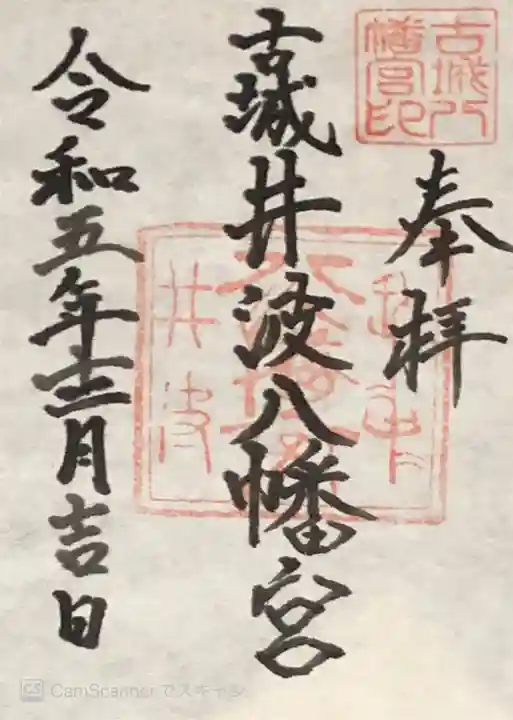 奉拝
古城八幡宮印
古城井波八幡宮
越中
八幡宮
井波
令和五年十二月吉日
CS CamScannerでスキャン